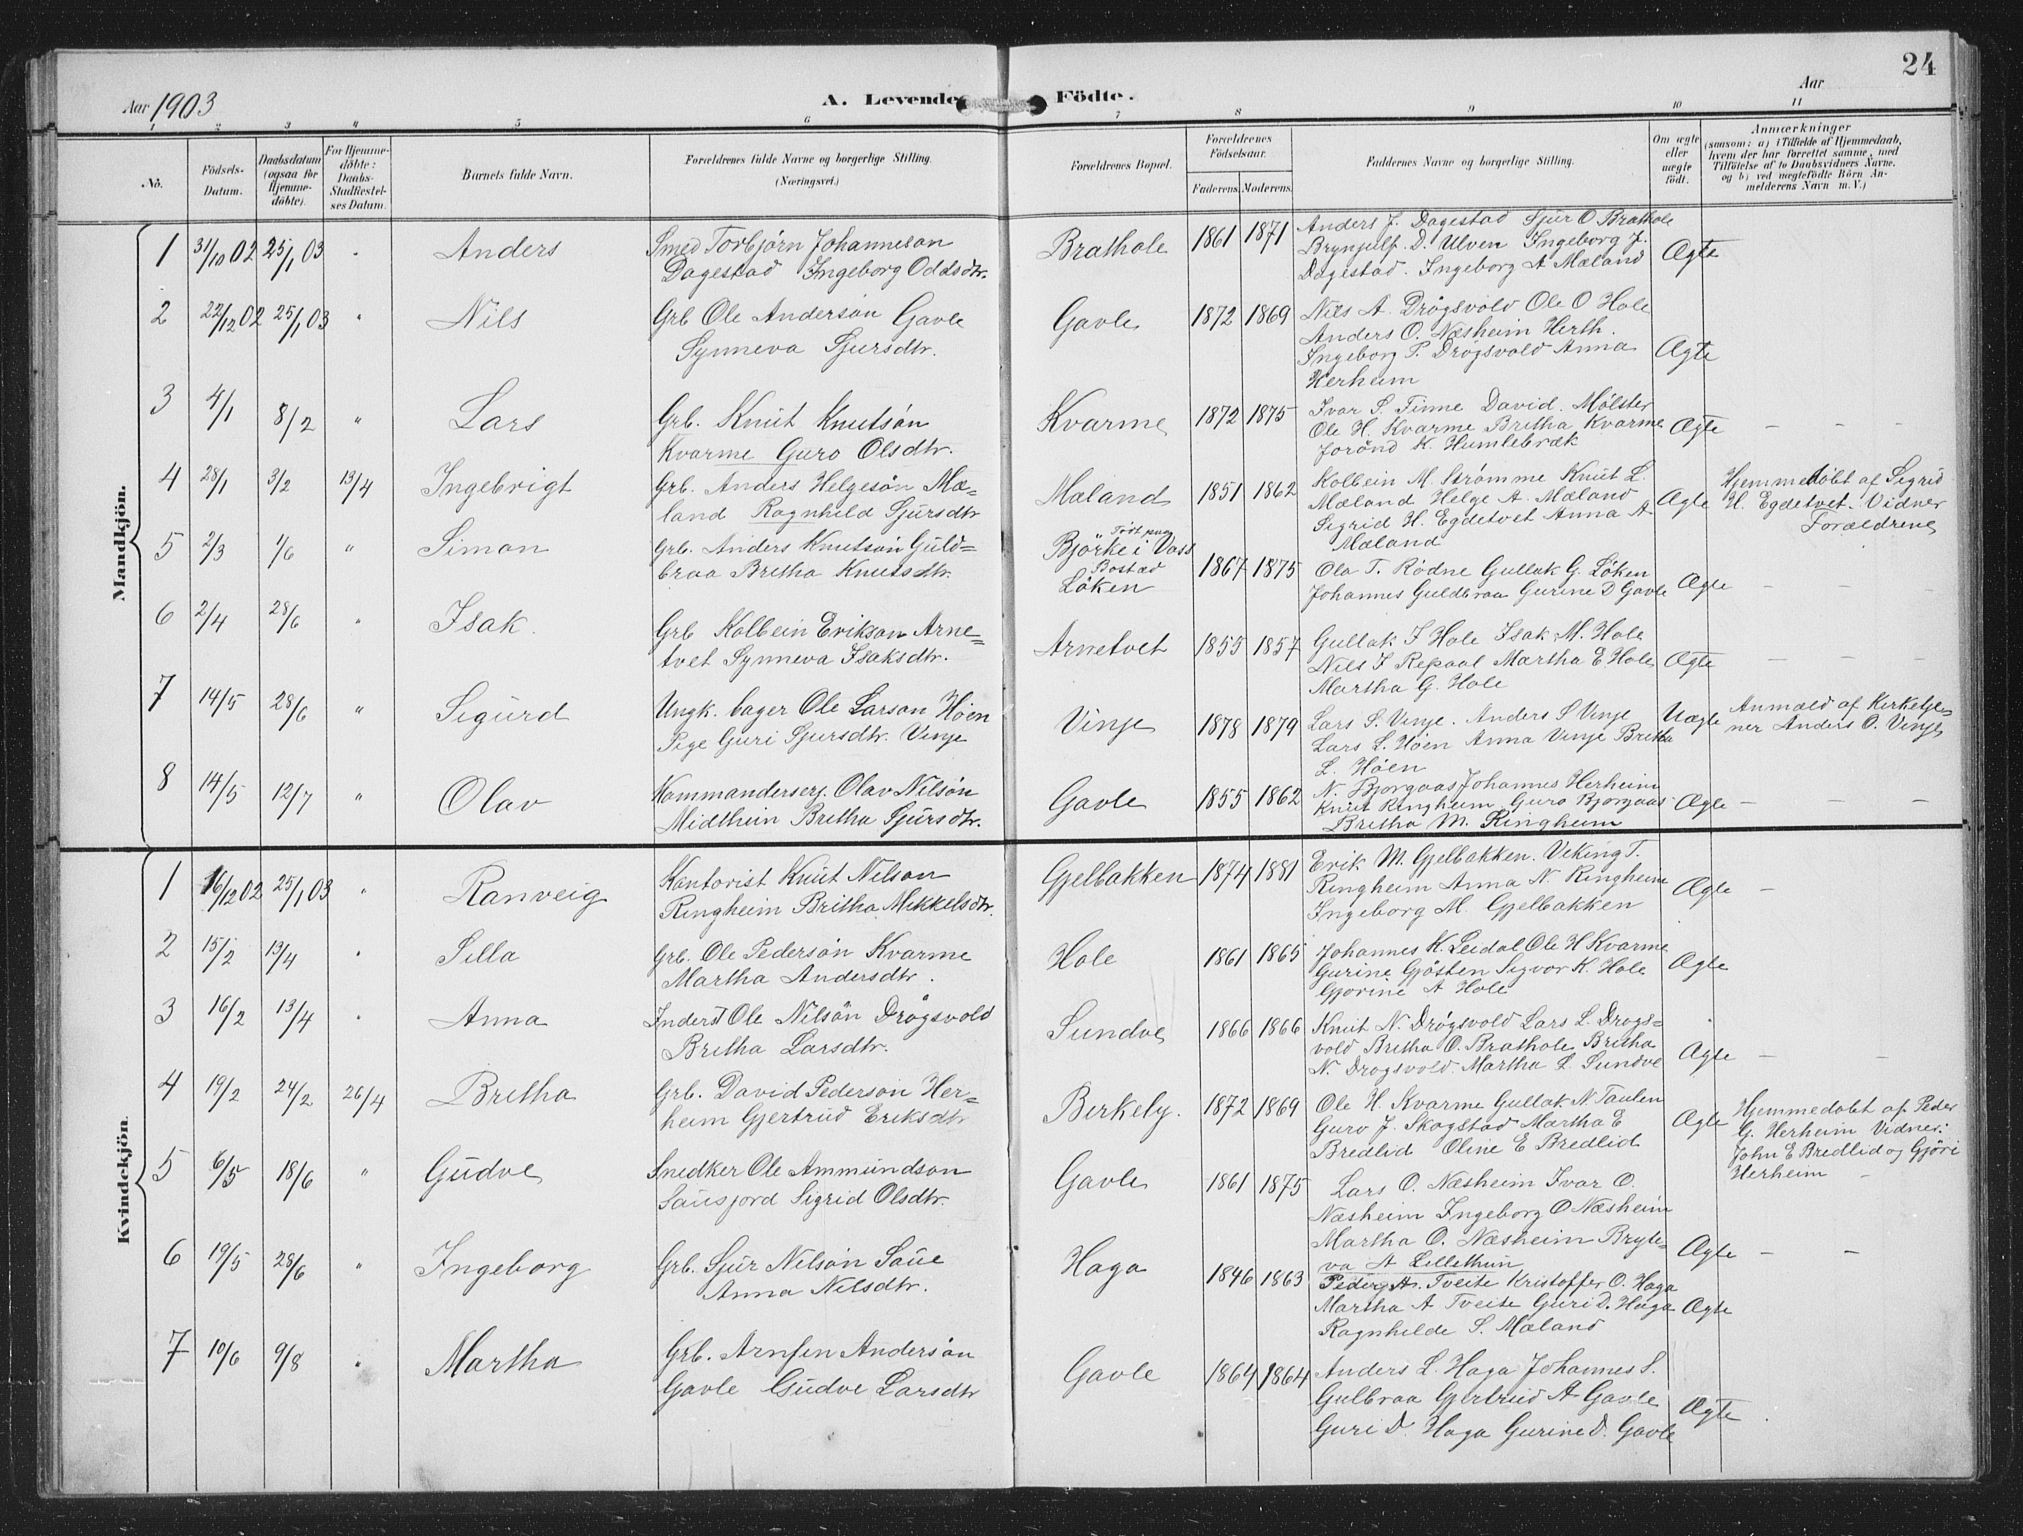 24
Aar 1903
A. Levende Födte.
Aar
1 2 3 4 5 6 7 8 9 10 11
No.
Födsels-Datum.
Daabsdatum (ogsaa for Hjemme-döbte).
For Hjemme-döbte: Daabs-Stadfæstel-ses Datum.
Barnets fulde Navn.
Forældrenes fulde Navne og borgerlige Stilling. (Næringsvei.)
Forældrenes Bopæl.
Forældrenes Födselsaar.
Faderens. Moderens.
Faddernes Navne og borgerlige Stilling.
Om ægte eller uægte födt.
Anmærkninger
(saasom: a) i Tilfælde af Hjemmedaab,
hvem der har forrettet samme, med
Tilföielse af to Daabsvidners Navne.
og b) ved uægtefödte Börn An-
melderens Navn m. V.)
Mandkjön.
1 31/10 02 25/1 03 " Anders
Smed Torbjørn Johanneson
Dagestad Ingeborg Oddsdtr.
Brathole 1861 1871
Anders J. Dagestad Sjur O Brathole
Brynjulf. D. Ulven Ingeborg J.
Dagestad. Ingeborg A Mæland
Ægte
2 22/12 02 25/1 03 " Nils
Grb Ole Anderson Gavle
Synneva Sjursdtr.
Gavle 1872 1869
Nils A. Drøgsvold Ole O Hole
Anders O. Næsheim Herth.
Ingeborg P. Drøgsvold Anna
Herheim
Ægte
3 4/1 8/2 " Lars
Grb. Knut Knutsøn
Kvarme Guro Olsdtr.
Kvarme 1872 1875
Ivar S. Finne David. Mølster
Ole H. Kvarme Britha Kvarme
Jorønd K. Humlebræk
Ægte – – –
4 28/1 3/2 13/4 Ingebrigt
Grb. Anders Helgesøn Mæ-
land Ragnhild Sjursdtr
Mæland 1851 1862
Kolbein M. Strømme Knut L.
Mæland Helge A. Mæland
Sigrid H. Egdetvet Anna A
Mæland
Ægte
Hjemmedøbt af Sigrid
H. Egdetvet. Vidner
Forældrene
5 2/3 1/6 " Simon
Grb. Anders Knutsøn Guld=
braa Britha Knutsdtr.
Født paa
Bjørke i Voss
Bostad
Løken
1867 1875
Ola T. Rødne Gullak G. Løken
Johannes Guldbraa Gurine D Gavle
Ægte – –
6 2/4 28/6 " Isak.
Grb Kolbein Erikson Arne=
tvet Synneva Isaksdtr.
Arnetvet 1855 1857
Gullak I Hole Isak M. Hole
Nils I Repaal Martha E Hole
Martha G. Hole
Ægte – – –
7 14/5 28/6 " Sigurd
Ungk. bager Ole Larson Høen
Pige Guri Sjursdtr. Vinje
Vinje 1878 1879
Lars S. Vinje. Anders S Vinje
Lars L. Høen Anna Vinje Britha
L. Høen
Uægte
Anmeld af Kirketje-
ner Anders O. Vinje
8 14/5 12/7 " Olav
Kommanderserg. Olav Nilsøn
Midthein Britha Sjursdtr.
Gavle 1855 1862
N. Bjorgaas Johannes Herheim
Knut Ringheim Guro Bjorgaas
Britha M. Ringheim
Ægte – – –
Kvindekjön.
1 16/12 02 25/1 03 " Ranveig
Kontorist Knut Nilson
Ringheim Britha Mikkelsdtr.
Gjelbakken 1874 1881
Erik M. Gjelbakken. Veking T.
Ringheim Anna N. Ringheim
Ingeborg M. Gjelbakken
Ægte –
2 15/2 13/4 " Silla
Grb. Ole Pedersøn Kvarme
Martha Andersdtr.
Hole 1861 1865
Johannes K. Leidal Ole H Kvarme
Gurine Gjøsten Sigvor K. Hole
Gjorine A Hole
Ægte
3 16/2 13/4 " Anna
Inderst Ole Nilsøn Drøgsvold
Britha Larsdtr.
Sundve 1866 1866
Knut N. Drøgsvold Lars L. Drogs=
vold Britha O. Brathole Britha
N. Drogsvold. Martha L. Sundve
Ægte – –
4 19/2 24/2 26/4 Britha
Grb. David Pederson Her=
heim Gjertrud Eriksdtr
Birkely. 1872 1869
Ole H. Kvarme Gullak N. Taulen
Guro J. Skogstad Martha E
Bredlid Oline E Bredlid
Ægte
Hjemmedøbt af Peder
G. Herheim Vidner:
John E Bredlid og Gjøri
Herheim –
5 6/5 18/6 " Gudve
Snedker Ole Ammundson
Sausjord Sigrid Olsdtr.
Gavle 1861 1875
Lars O. Næsheim Ivar O.
Næsheim Ingeborg O Næsheim
Martha O. Næsheim Bryte-
va A Lillethun
Ægte – –
6 19/5 28/6 " Ingeborg
Grb. Sjur Nilsøn Saue
Anna Nilsdtr.
Haga 1846 1863
Peder A. Tveite Kristoffer O. Haga
Martha A Tveite Guri D. Haga
Ragnhilde S. Mæland
Ægte
7 10/6 9/8 " Martha
Grb. Arnfin Andersøn
Gavle Gudve Larsdtr
Gavle 1864 1864
Anders L. Haga Johannes S.
Gulbraa Gjertrud A Gavle
Guri D. Haga Gurine D. Gavle
Ægte